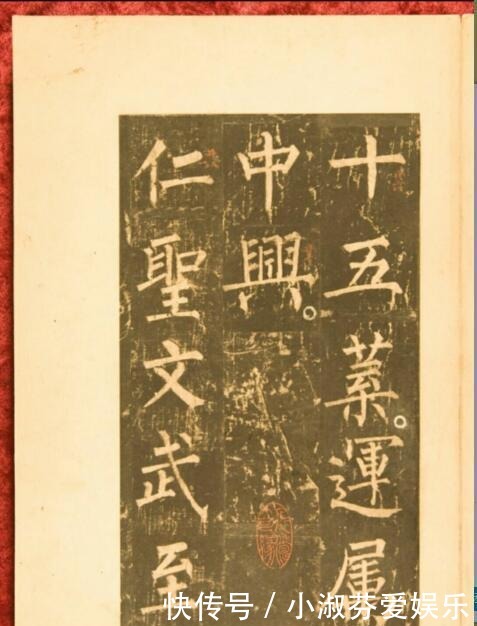 十五葉運属
中興
仁聖文武至
快传号/小淑芬爱娱乐